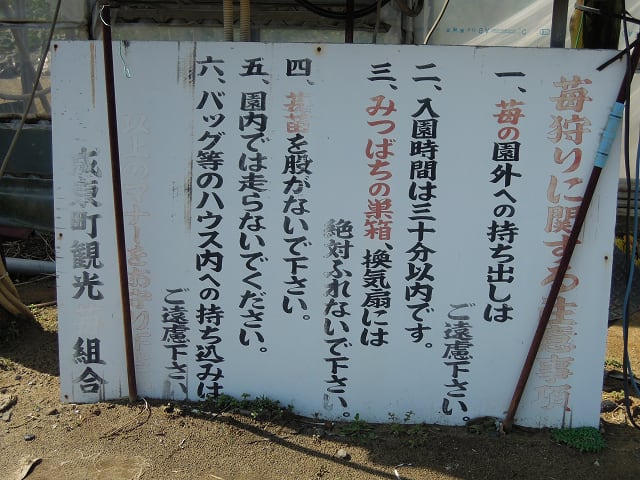 苺狩りに関する注意事項
一、苺の園外への持ち出しは
ご遠慮下さい
二、入園時間は三十分以内です。
三、みつばちの巣箱、換気扇には
絶対ふれないで下さい。
四、苺苗を股がないで下さい。
五、園内では走らないでください。
六、バッグ等のハウス内への持ち込みは
ご遠慮下さい、
マナーをお守り下
成東町観光苺組合